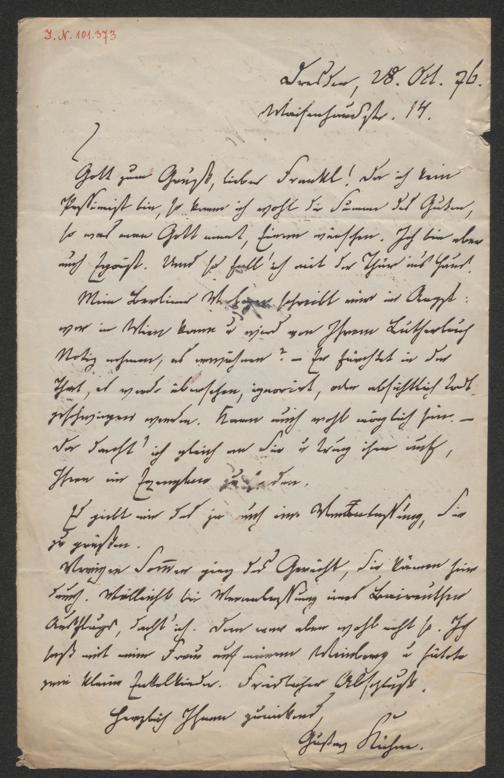 I. N. 101.373
Dresden, 28. Oct. 76.
Waisenhausstr. 14.
Gott zum Gruß, lieber Frankl! Da ich kein
Pessimist bin, so kann ich wohl die Summe des Guten,
so was man Gott nennt, Einem wünschen. Ich bin aber
auch Egoist. Und so fall' ich mit der Thür ins Haus.
Mein Berliner schreibt mir in Angst:
wer in Wien kann u wird von Ihrem Lutherbuch
Notiz nehmen, es erwähnen? – Er fürchtet in der
That, es werde übersehen, ignorirt, oder absichtlich todt-
geschwiegen werden. Kann auch wohl möglich sein. –
Da dacht' ich gleich an Sie u trug ihm auf,
Ihnen ein Exemplar zu senden.
Es giebt mir das ja auch eine Veranlassung, Sie
zu grüßen.
Vorigen Sommer ging das Gerücht, Sie kämen hier
durch. Vielleicht bei Veranlassung eines Baireuther
Ausflugs, dacht' ich. Dem war aber wohl nicht so. Ich
saß mit meiner Frau auf meinem Weinberg u hütete
zwei kleine Enkelkinder. Friedlicher Abschluß.
Herzlich Ihnen zuwinkend,
Gustav Kühne.